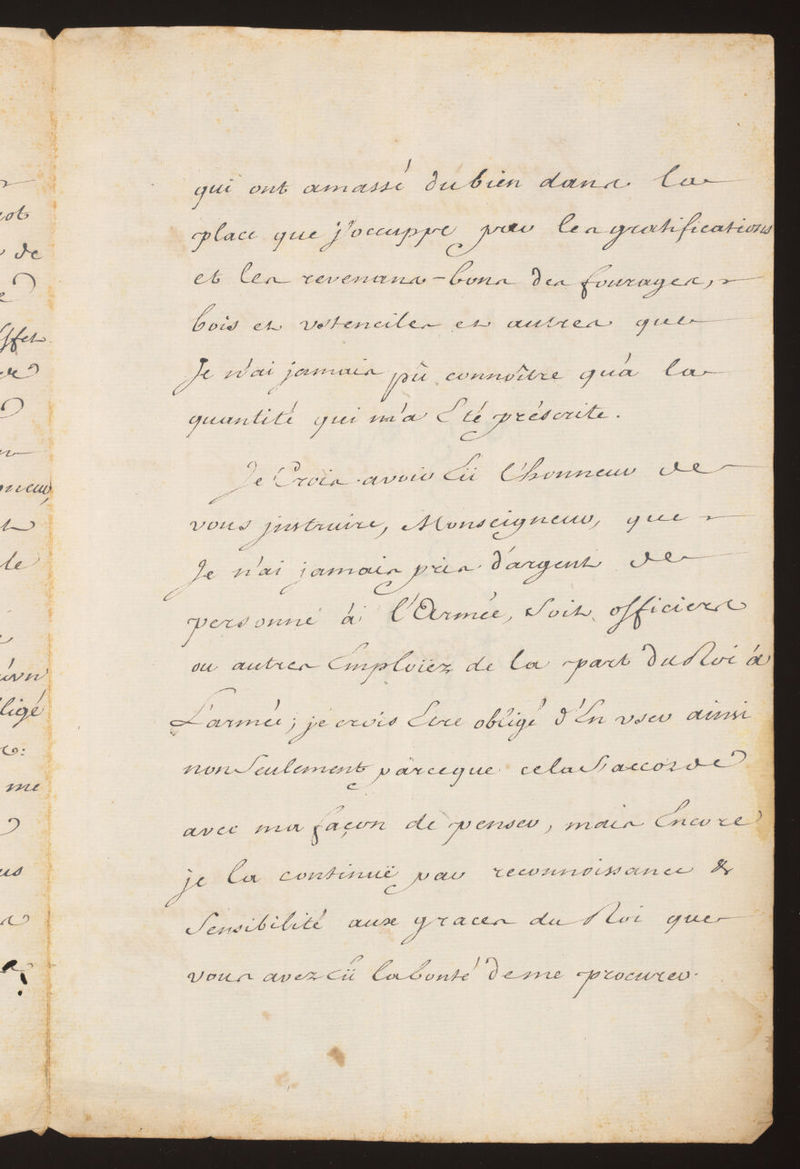 qui ont amassé du bien dans la
place que j'occuppe par les gratifications
et les revenans-bons des fourages,
bois et vstenciles et autres que
Je n'ai jamais pû connoître qu'à la
quantité qui m'a Eté préscrite.
Je Crois avoir Eü l'honneur de
vous jnstruire, Monseigneur, que
Je n'ai jamais pris d'argent de
personne à l'Armée, Soit officiers
ou autres Emploiiez de la part du Roi à
L'armée; je crois Etre obligé d'En vser ainsi
non Seulement parceque cela S'accorde
avec ma façon de penser, mais Encore
je la continuë par reconnoissance &
Sensibilité aux graces du Roi que
vous avez Eü la bonté de me procurer.